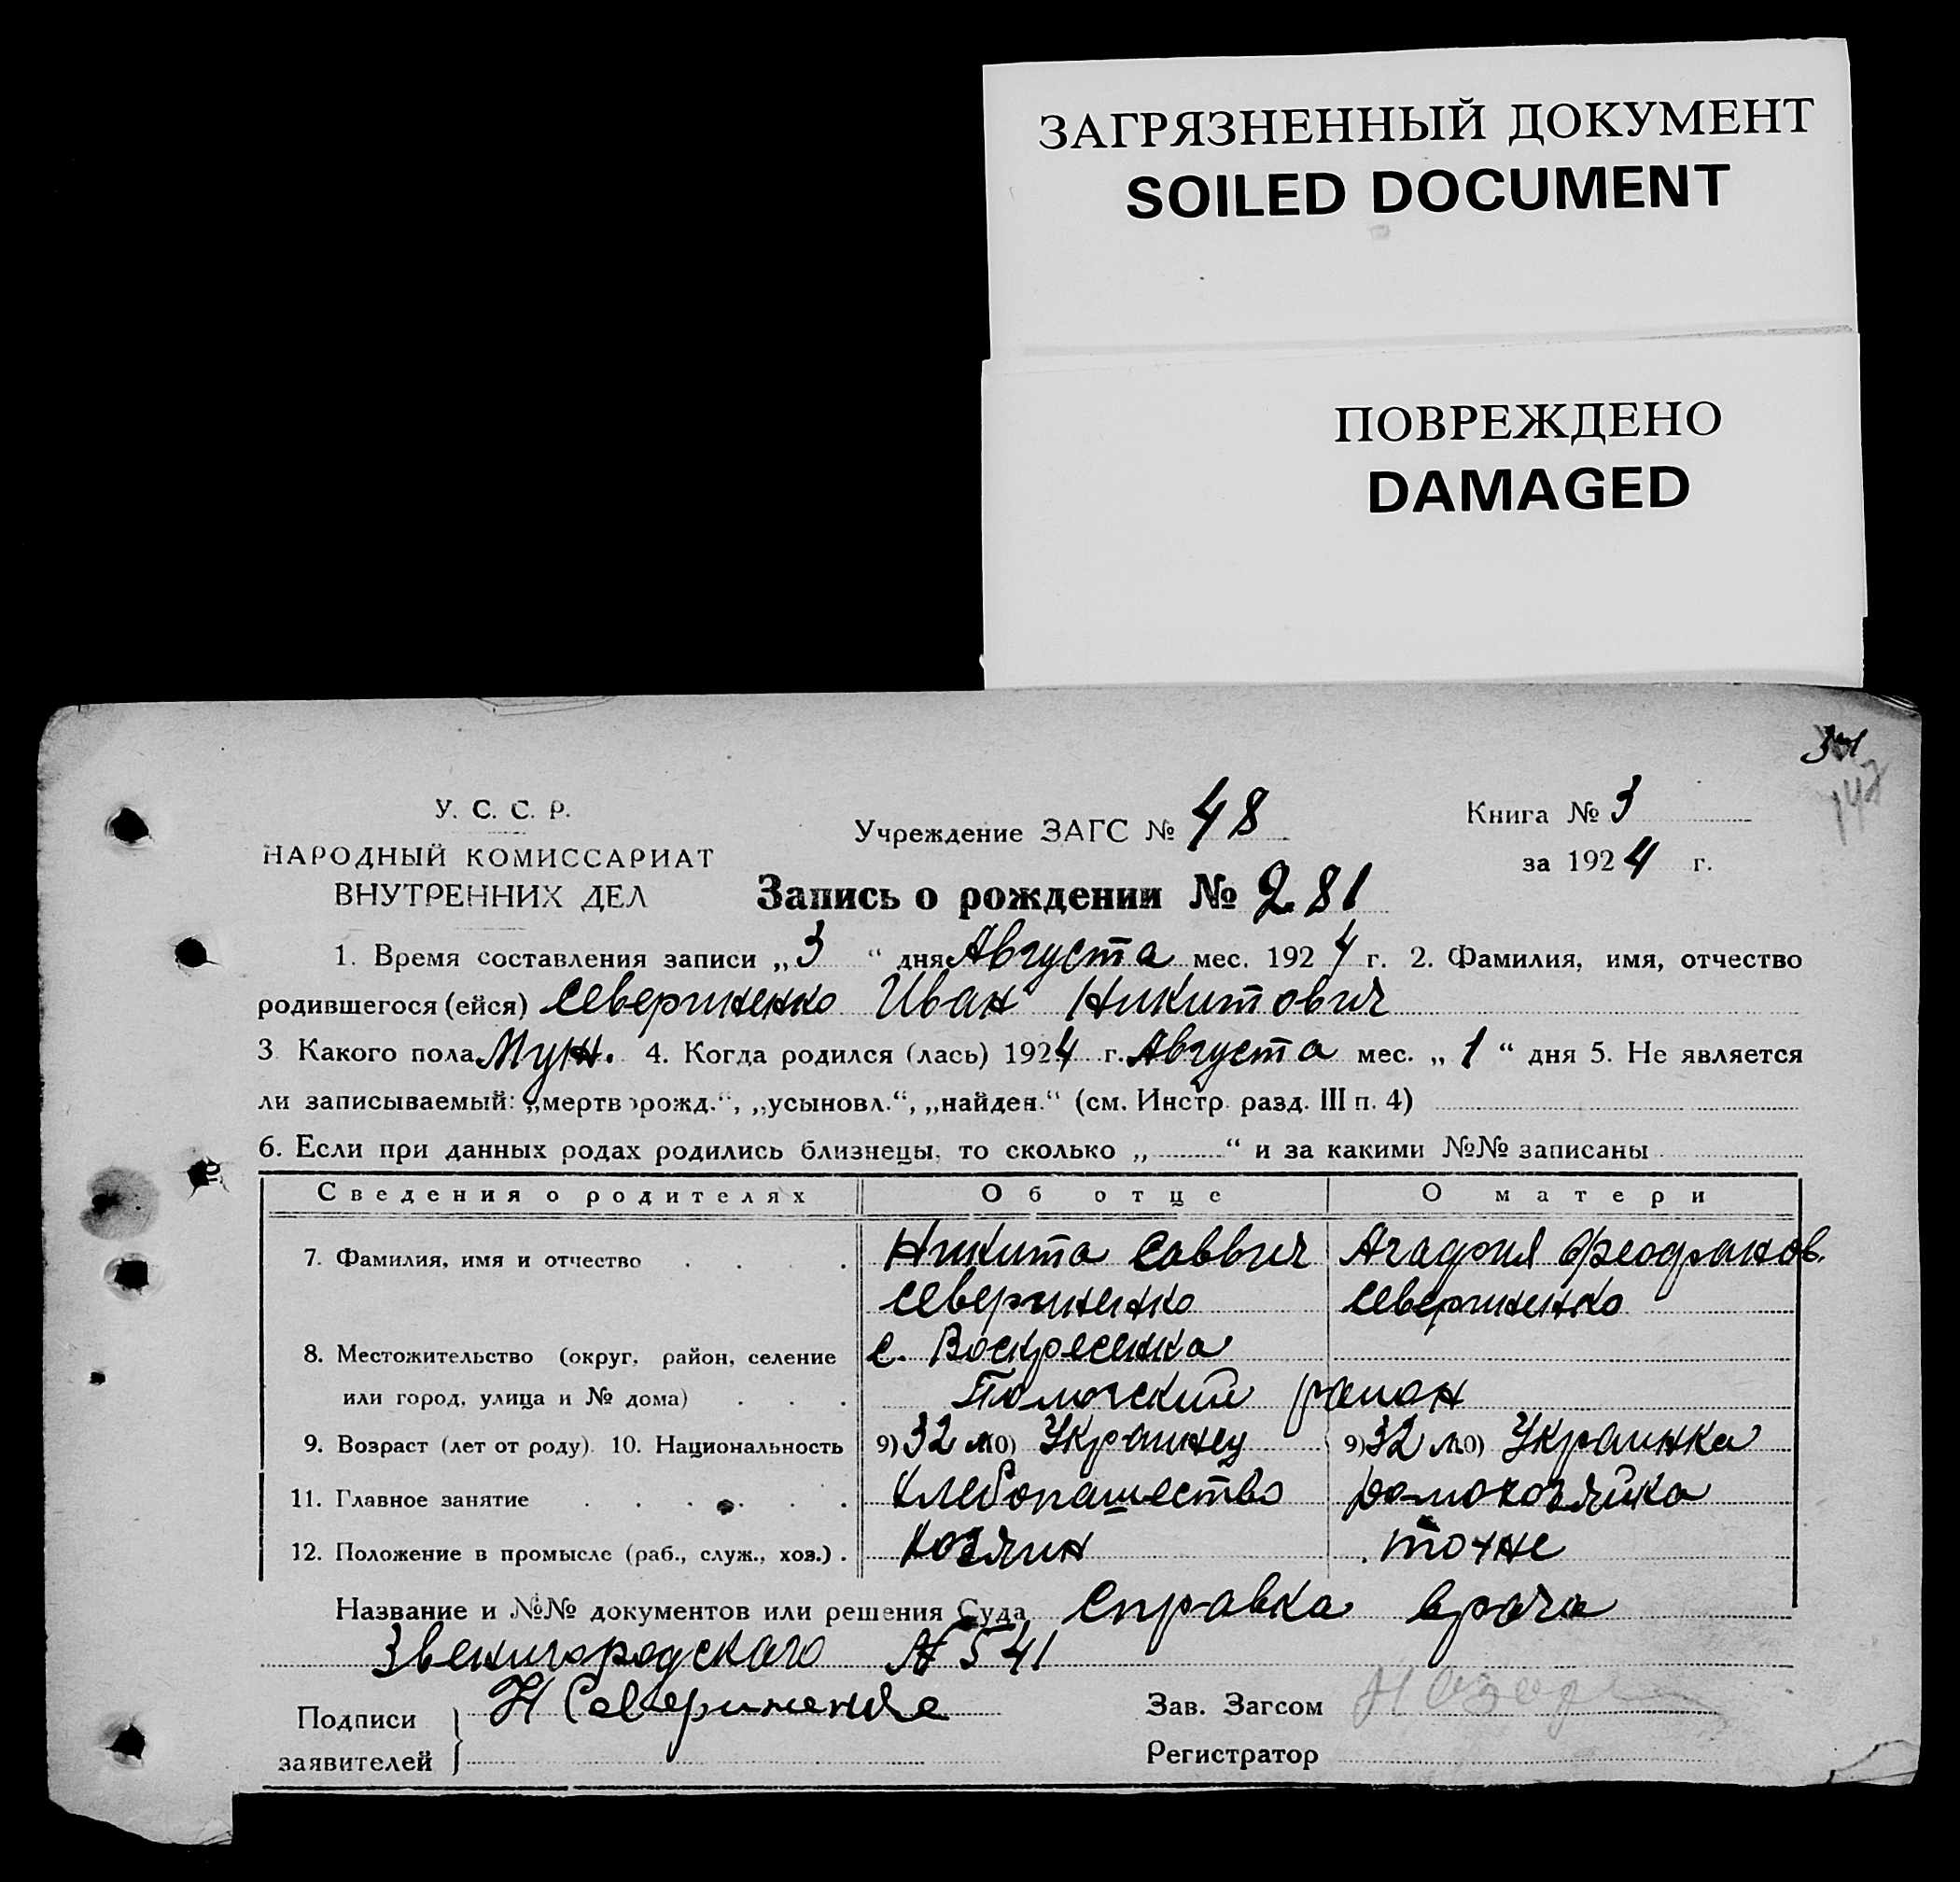 ЗАГРЯЗНЕННЫЙ ДОКУМЕНТ
SOILED DOCUMENT
ПОВРЕЖДЕНО
DAMAGED
У. С. С. Р.
НАРОДНЫЙ КОМИССАРИАТ
ВНУТРЕННИХ ДЕЛ
Учреждение ЗАГС № 48
Книга № 3
за 1924 г.
Запись о рождении № 281
1. Время составления записи „3“ дня Августа мес. 1924 г. 2. Фамилия, имя, отчество
родившегося (ейся) Севериненко Иван Никитович
3 Какого пола Муж. 4. Когда родился (лась) 1924 г. Августа мес. „1“ дня 5. Не является
ли записываемый: „мертворожд.“, „усыновл.“, „найден.“ (см. Инстр. разд. III п. 4)
6. Если при данных родах родились близнецы, то сколько „ “ и за какими №№ записаны
Сведения о родителях Об отце О матери
7. Фамилия, имя и отчество Никита Саввич Агафия Феофанов.
Севериненко Севериненко
8. Местожительство (округ, район, селение с. Воскресенка
или город, улица и № дома) район
9. Возраст (лет от роду). 10. Национальность 9) 32 л 10) Украинец 9) 32 л 10) Украинка
11. Главное занятие Хлебопашество домохозяйка
12. Положение в промысле (раб., служ., хоз.) Хозяин тоже
Название и №№ документов или решения Суда Справка врача
Звенигородского № 541
Подписи заявителей Н Севериненко
Зав. Загсом
Регистратор